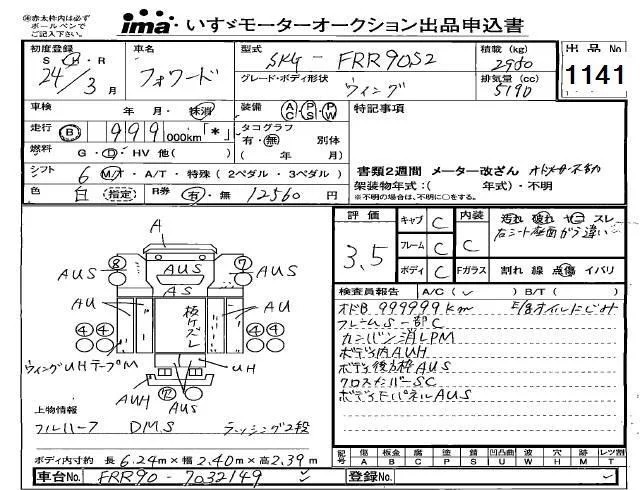 ㊟赤太枠内は必ず
ボールペンで
ご記入下さい。
ima いすゞモーターオークション出品申込書
初度登録 車名 型式 積載(kg) 出品No
S H・R フォワード SKG - FRR90S2 2950 1141
24/3月 グレード・ボディ形状 ウイング 排気量(cc) 5190
車検 年・月・抹消 装備 AC PS PW 特記事項
走行 B 999,000km「*」 タコグラフ
有・無 別体
燃料 G・D・HV 他( ) ( 年 月)
シフト 6 M/T・A/T・特殊(2ペダル・3ペダル) 書類2週間 メーター改ざん オドメーター不動
架装物年式:( 年式)・不明
色 白 指定 R券 有・無 12560円 ※不明の場合は、不明に○をする。
評価 キャブ C 内装 汚れ 破れ ヤニ スレ
右シート座面がら違い
3.5 フレーム C C
ボディ C Fガラス 割れ 線 点傷 イバリ
検査員報告 A/C( ✓ ) B/T( )
オドB 999999km E/gオイルにじみ
フレームS一部C
カンバン消しPM
ボディ内AUH
ボディ後方枠AUS
クロスメンバーSC
ボディ下パネルAUS
A
⑧ AUS ⑦
AUS AUS
AS
AU AU
板ゲズレ
④④ ④④
ウイングUHテープM UH
AUH AUS
上物情報
フルハーフ DMS ラッシング2段
ボディ内寸約 長6.24m×幅2.40m×高2.39m
記号 傷A 板金B 腐C 塗P 錆S 凹凸曲U 波W 穴H 跡M レツ割T
車台No. FRR90 - 7032149 登録No.